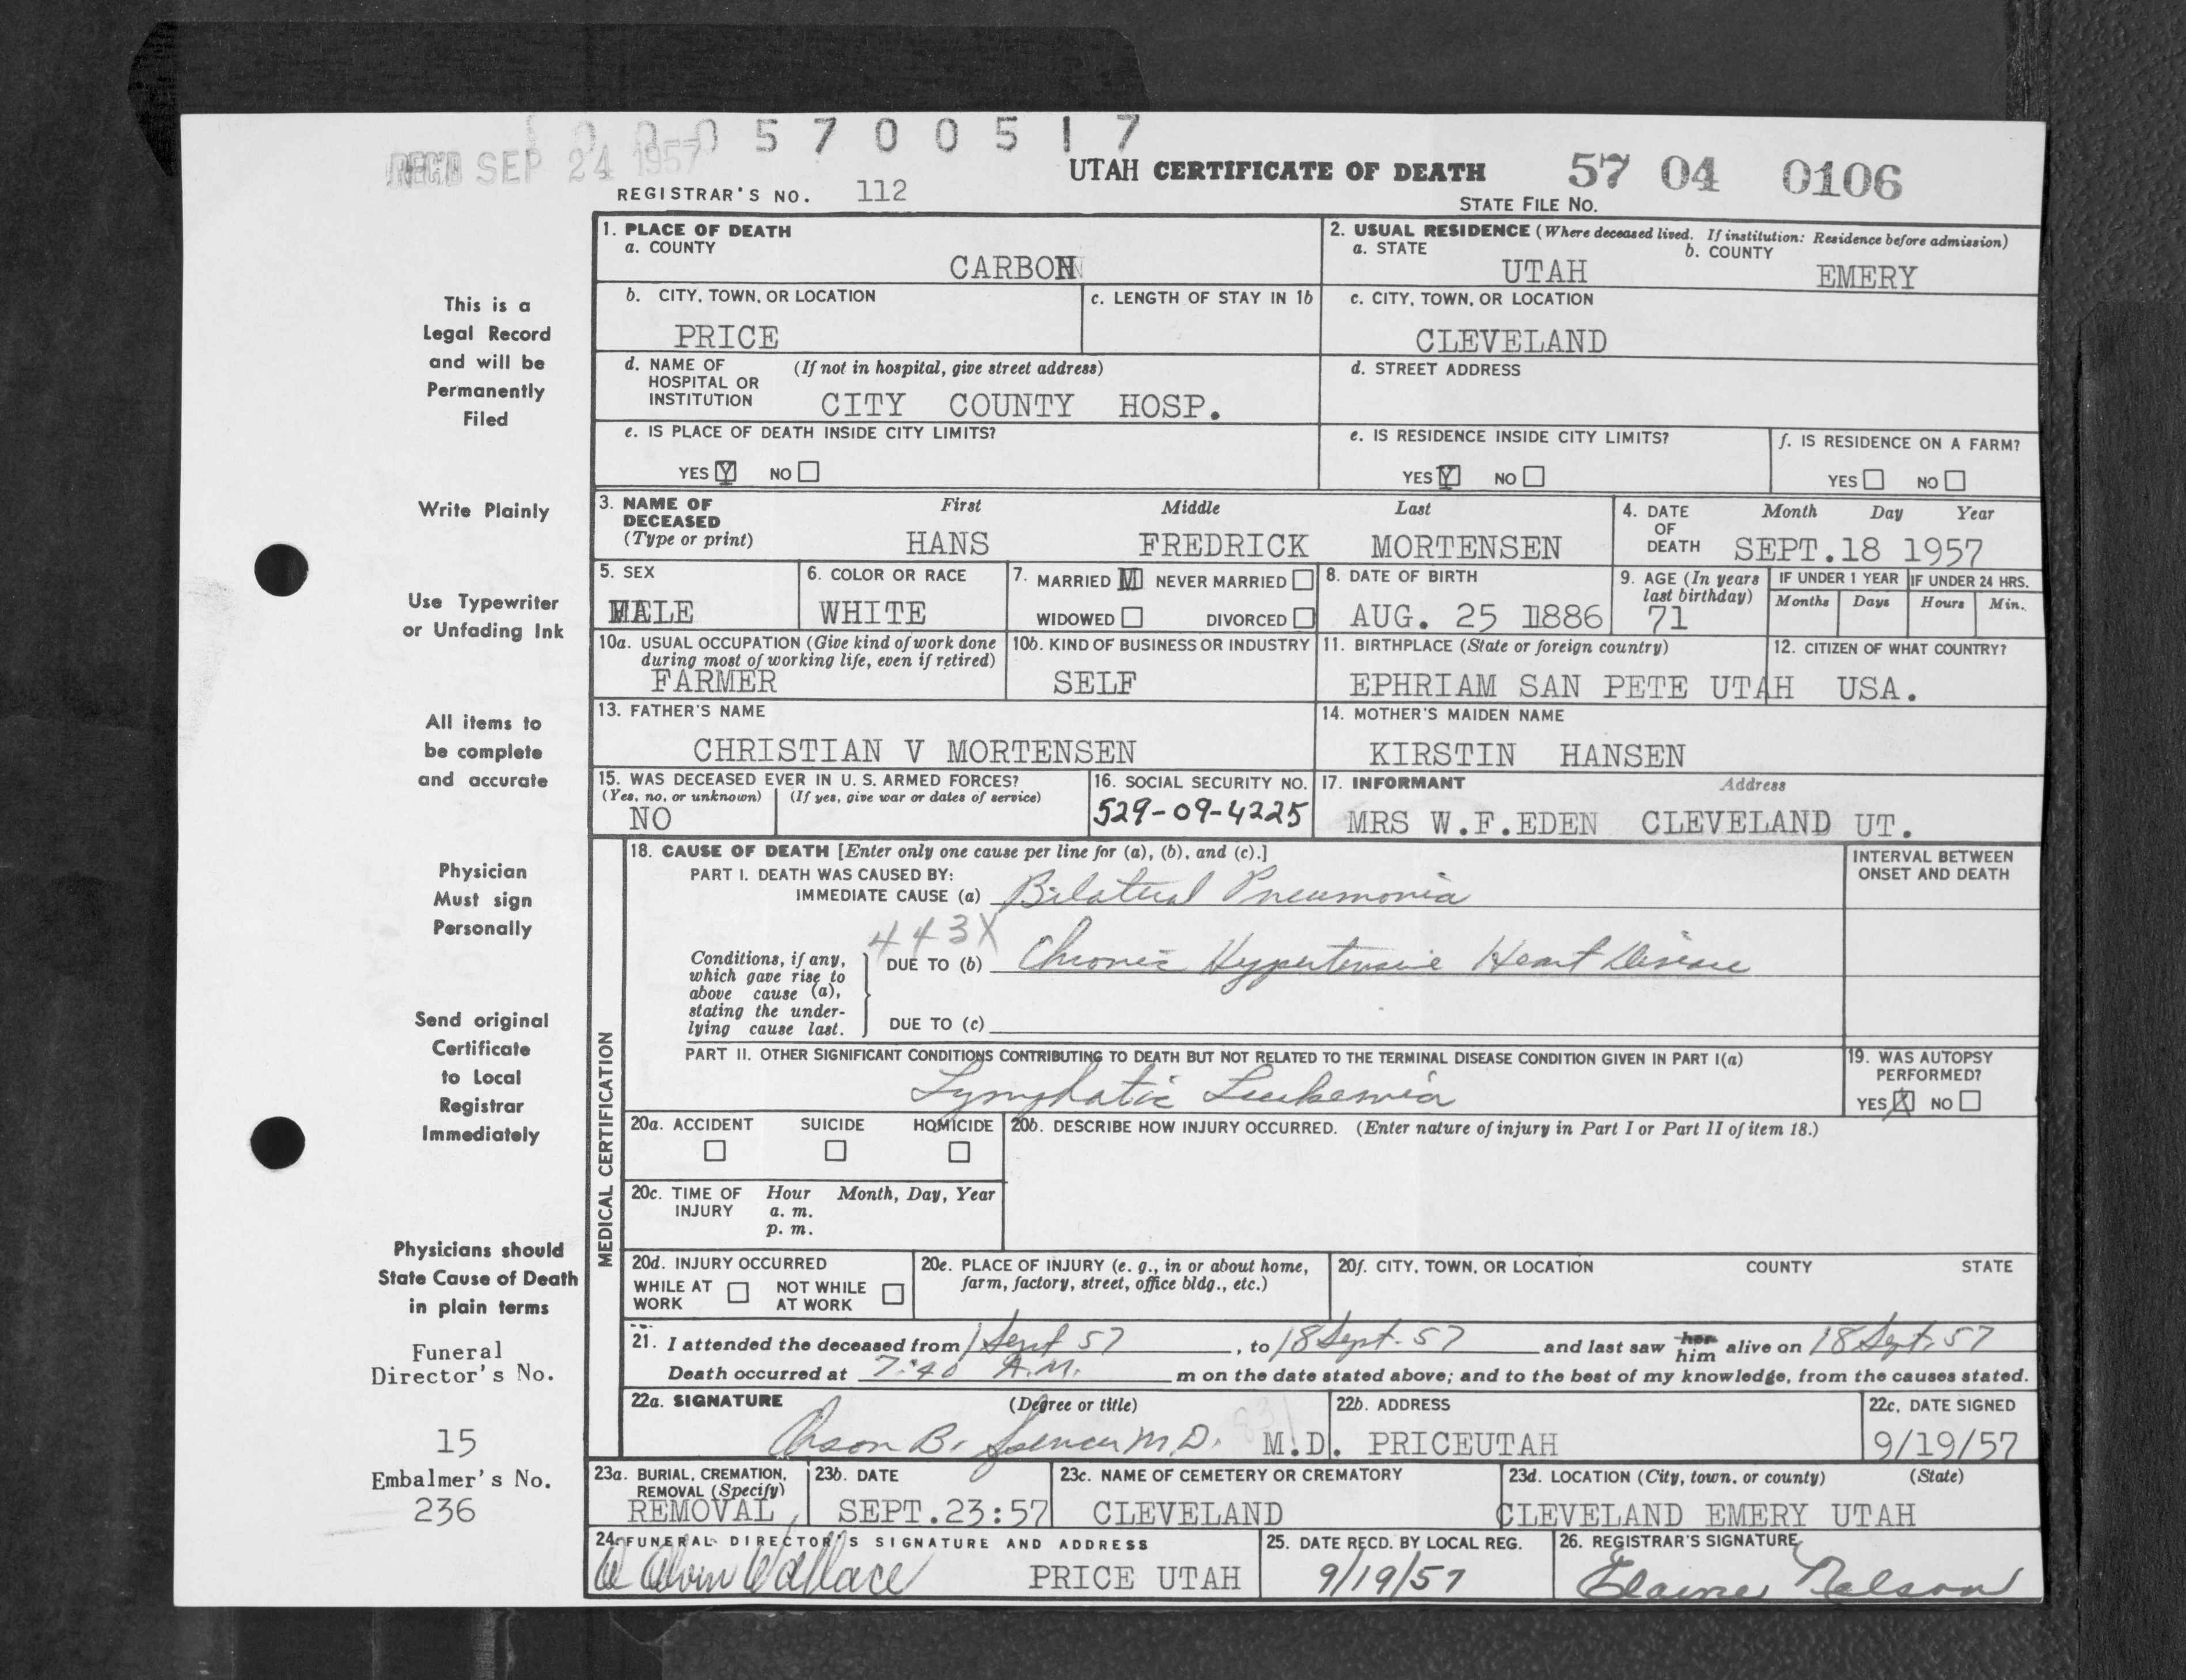 0005700517
RECD SEP 24 1957
UTAH CERTIFICATE OF DEATH 57 04 0106
REGISTRAR'S NO. 112
STATE FILE NO.
1. PLACE OF DEATH
a. COUNTY
CARBON
2. USUAL RESIDENCE (Where deceased lived. If institution: Residence before admission)
a. STATE b. COUNTY
UTAH EMERY
b. CITY, TOWN, OR LOCATION
PRICE
c. LENGTH OF STAY IN 1b
c. CITY, TOWN, OR LOCATION
CLEVELAND
d. NAME OF (If not in hospital, give street address)
HOSPITAL OR
INSTITUTION CITY COUNTY HOSP.
d. STREET ADDRESS
e. IS PLACE OF DEATH INSIDE CITY LIMITS?
YES Y NO
e. IS RESIDENCE INSIDE CITY LIMITS?
YES Y NO
f. IS RESIDENCE ON A FARM?
YES NO
3. NAME OF First Middle Last
DECEASED
(Type or print) HANS FREDRICK MORTENSEN
4. DATE Month Day Year
OF
DEATH SEPT.18 1957
5. SEX
MALE
6. COLOR OR RACE
WHITE
7. MARRIED M NEVER MARRIED
WIDOWED DIVORCED
8. DATE OF BIRTH
AUG. 25 1886
9. AGE (In years
last birthday)
71
IF UNDER 1 YEAR IF UNDER 24 HRS.
Months Days Hours Min.
10a. USUAL OCCUPATION (Give kind of work done
during most of working life, even if retired)
FARMER
10b. KIND OF BUSINESS OR INDUSTRY
SELF
11. BIRTHPLACE (State or foreign country)
EPHRIAM SAN PETE UTAH
12. CITIZEN OF WHAT COUNTRY?
USA.
13. FATHER'S NAME
CHRISTIAN V MORTENSEN
14. MOTHER'S MAIDEN NAME
KIRSTIN HANSEN
15. WAS DECEASED EVER IN U. S. ARMED FORCES?
(Yes, no, or unknown) (If yes, give war or dates of service)
NO
16. SOCIAL SECURITY NO.
529-09-4225
17. INFORMANT Address
MRS W.F.EDEN CLEVELAND UT.
MEDICAL CERTIFICATION
18. CAUSE OF DEATH [Enter only one cause per line for (a), (b), and (c).]
PART I. DEATH WAS CAUSED BY:
IMMEDIATE CAUSE (a) Bilateral Pneumonia
INTERVAL BETWEEN
ONSET AND DEATH
443X
Conditions, if any,
which gave rise to
above cause (a),
stating the under-
lying cause last.
DUE TO (b) Chronic Hypertensive Heart Disease
DUE TO (c)
PART II. OTHER SIGNIFICANT CONDITIONS CONTRIBUTING TO DEATH BUT NOT RELATED TO THE TERMINAL DISEASE CONDITION GIVEN IN PART I(a)
Lymphatic Leukemia
19. WAS AUTOPSY
PERFORMED?
YES X NO
20a. ACCIDENT SUICIDE HOMICIDE
20b. DESCRIBE HOW INJURY OCCURRED. (Enter nature of injury in Part I or Part II of item 18.)
20c. TIME OF Hour Month, Day, Year
INJURY a. m.
p. m.
20d. INJURY OCCURRED
WHILE AT NOT WHILE
WORK AT WORK
20e. PLACE OF INJURY (e. g., in or about home,
farm, factory, street, office bldg., etc.)
20f. CITY, TOWN, OR LOCATION COUNTY STATE
21. I attended the deceased from 1 Sept 57, to 18 Sept. 57 and last saw her him alive on 18 Sept. 57
Death occurred at 7:40 A.M. m on the date stated above; and to the best of my knowledge, from the causes stated.
22a. SIGNATURE (Degree or title)
Orson B. Spencer M.D. M.D.
22b. ADDRESS
PRICEUTAH
22c. DATE SIGNED
9/19/57
23a. BURIAL, CREMATION,
REMOVAL (Specify)
REMOVAL
23b. DATE
SEPT.23:57
23c. NAME OF CEMETERY OR CREMATORY
CLEVELAND
23d. LOCATION (City, town, or county) (State)
CLEVELAND EMERY UTAH
24. FUNERAL DIRECTOR'S SIGNATURE AND ADDRESS
Wallace PRICE UTAH
25. DATE RECD. BY LOCAL REG.
9/19/57
26. REGISTRAR'S SIGNATURE
Elaine Nelson
This is a
Legal Record
and will be
Permanently
Filed
Write Plainly
Use Typewriter
or Unfading Ink
All items to
be complete
and accurate
Physician
Must sign
Personally
Send original
Certificate
to Local
Registrar
Immediately
Physicians should
State Cause of Death
in plain terms
Funeral
Director's No.
15
Embalmer's No.
236